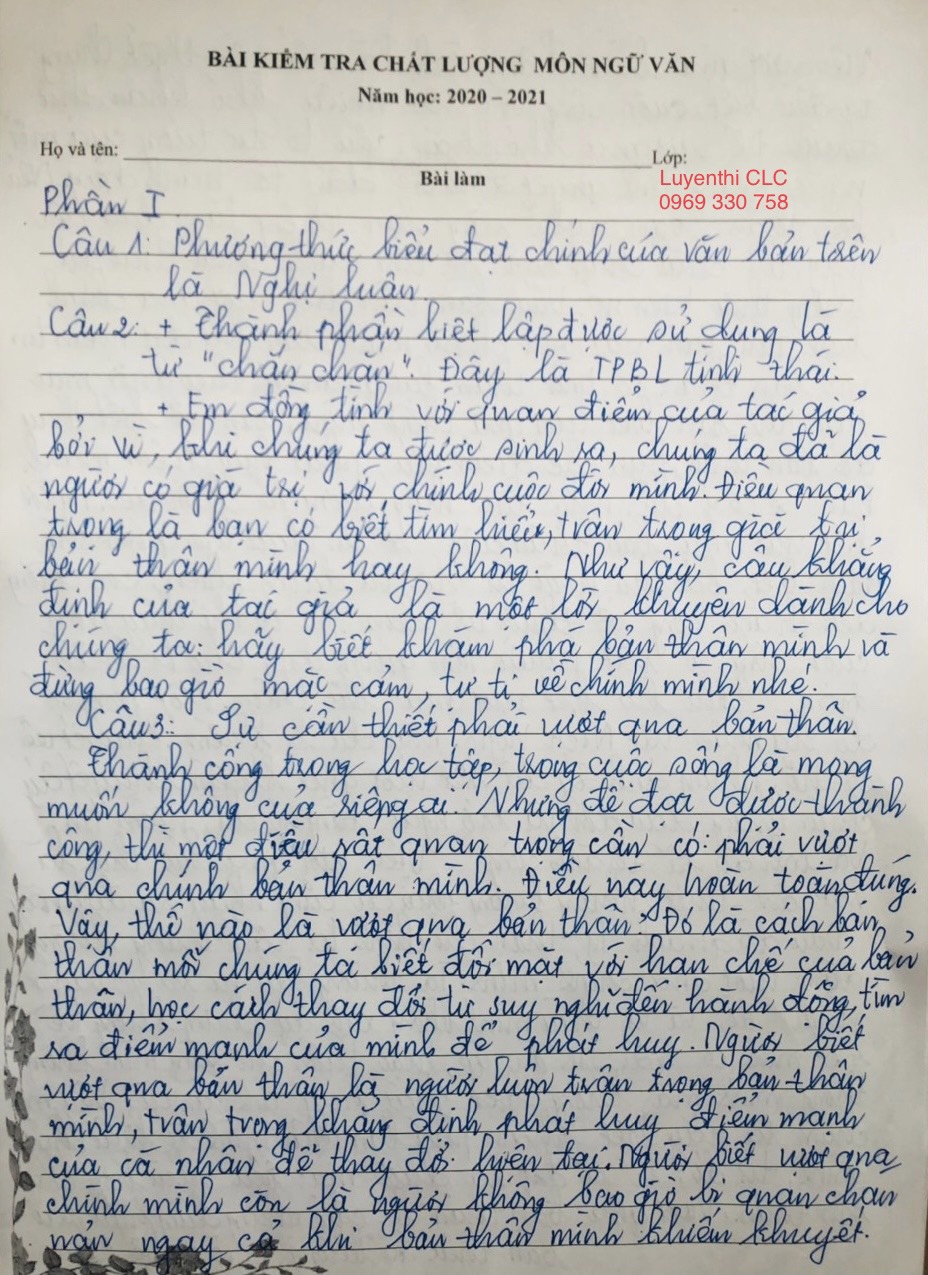 BÀI KIỂM TRA CHẤT LƯỢNG MÔN NGỮ VĂN
Năm học: 2020 – 2021
Họ và tên: Lớp:
Luyenthi CLC
Bài làm
0969 330 758
Phần I
Câu 1: Phương thức biểu đạt chính của văn bản trên
là Nghị luận.
Câu 2: + Thành phần biệt lập được sử dụng là
từ "chắc chắn". Đây là TPBL tình thái.
+ Em đồng tình với quan điểm của tác giả,
bởi vì, khi chúng ta được sinh ra, chúng ta đã là
người có giá trị với chính cuộc đời mình. Điều quan
trọng là bạn có biết tìm hiểu, trân trọng giá trị
bản thân mình hay không. Như vậy, câu khẳng
định của tác giả là một lời khuyên dành cho
chúng ta: hãy biết khám phá bản thân mình và
đừng bao giờ mặc cảm, tự ti về chính mình nhé.
Câu 3: Sự cần thiết phải vượt qua bản thân.
Thành công trong học tập, trong cuộc sống là mong
muốn không của riêng ai. Nhưng để đạt được thành
công, thì một điều rất quan trọng cần có: phải vượt
qua chính bản thân mình. Điều này hoàn toàn đúng.
Vậy, thế nào là vượt qua bản thân? Đó là cách bản
thân mỗi chúng ta biết đối mặt với hạn chế của bản
thân, học cách thay đổi từ suy nghĩ đến hành động, tìm
ra điểm mạnh của mình để phát huy. Người biết
vượt qua bản thân là người luôn trân trọng bản thân
mình, trân trọng khẳng định phát huy điểm mạnh
của cá nhân để thay đổi hiện tại. Người biết vượt qua
chính mình còn là người không bao giờ bi quan chán
nản ngay cả khi bản thân mình khiếm khuyết.